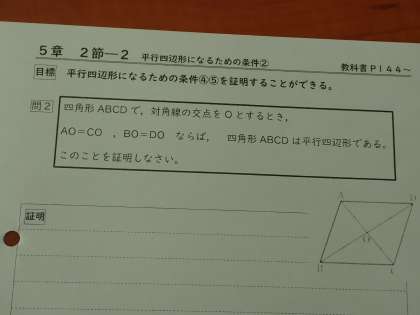 5章 2節―2 平行四辺形になるための条件② 教科書P144～
目標 平行四辺形になるための条件④⑤を証明することができる。
問2 四角形ABCDで、対角線の交点をOとするとき、
AO=CO ，BO=DO ならば， 四角形ABCDは平行四辺形である。
このことを証明しなさい。
証明
A